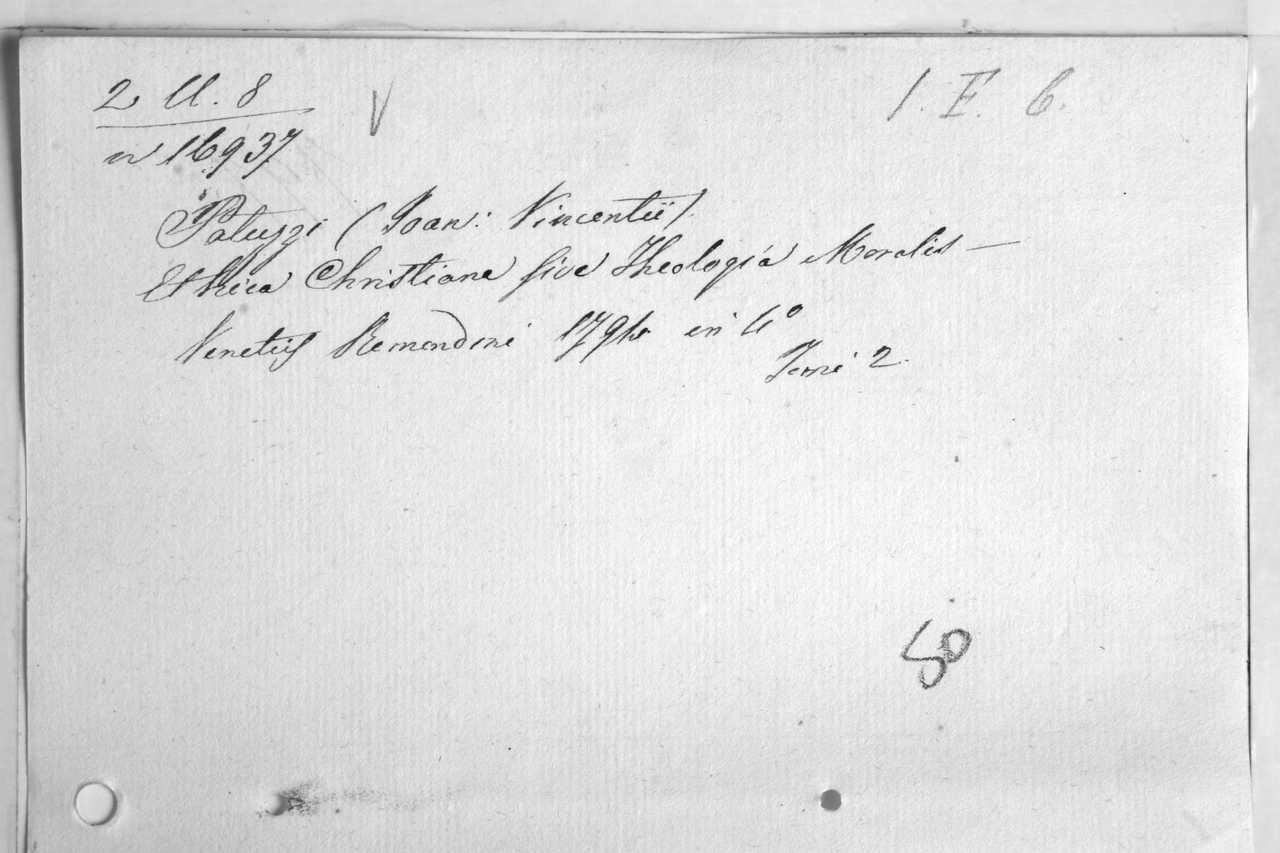 2 U. 8
1. E. 6.
n 16937
Patuzzi (Joan: Vincentii).
Ethica Christiana sive Theologia Moralis —
Venetiis Remondini in 4º
Tomi 2.
50